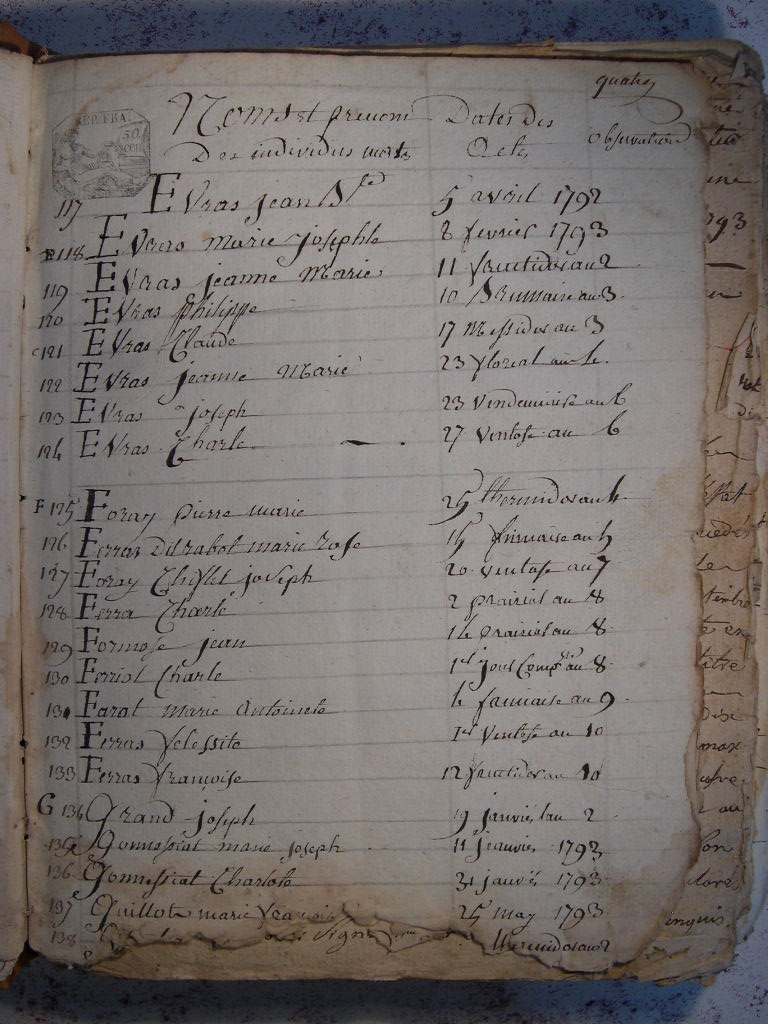 quatre
REP. FRA.
50 cen
Noms et prenom Dates des
Des individus morts Actes observations
117 Evras jean Bte 5 avril 1792
118 Evras marie josephte 8 fevrier 1793
119 Evras jeanne Marie 11 fructidor an 2
120 Evras philippe 10 Brumaire au 3
121 Evras Claude 17 Messidor au 3
122 Evras jeanne Marie 23 floreal au 4.
123 Evras joseph 23 vendemiaire au 6
124 Evras Charle 27 ventose au 6
F 125 Foray pierre marie 25 thermidor au 4
126 Ferras marie rose 15 frimaire au 5
127 Foray joseph 20 ventose au 7
128 Ferra Charle 2 prairial au 8
129 Formose jean 14 prairial au 8
130 Ferriol Charle 1er jour Compre au 8
131 Farot marie Antoinete 4 frimaire au 9
132 Ferras 1er Ventose au 10
133 Ferras françoise 12 fructidor au 10
G 134 Grand joseph 19 janvier lan 2
135 Gonnessiat marie joseph 11 jeanvier 1793
136 Gonnessiat Charlote 31 janvier 1793
137 Guillot marie françoise 25 may 1793
138 thermidor au 2